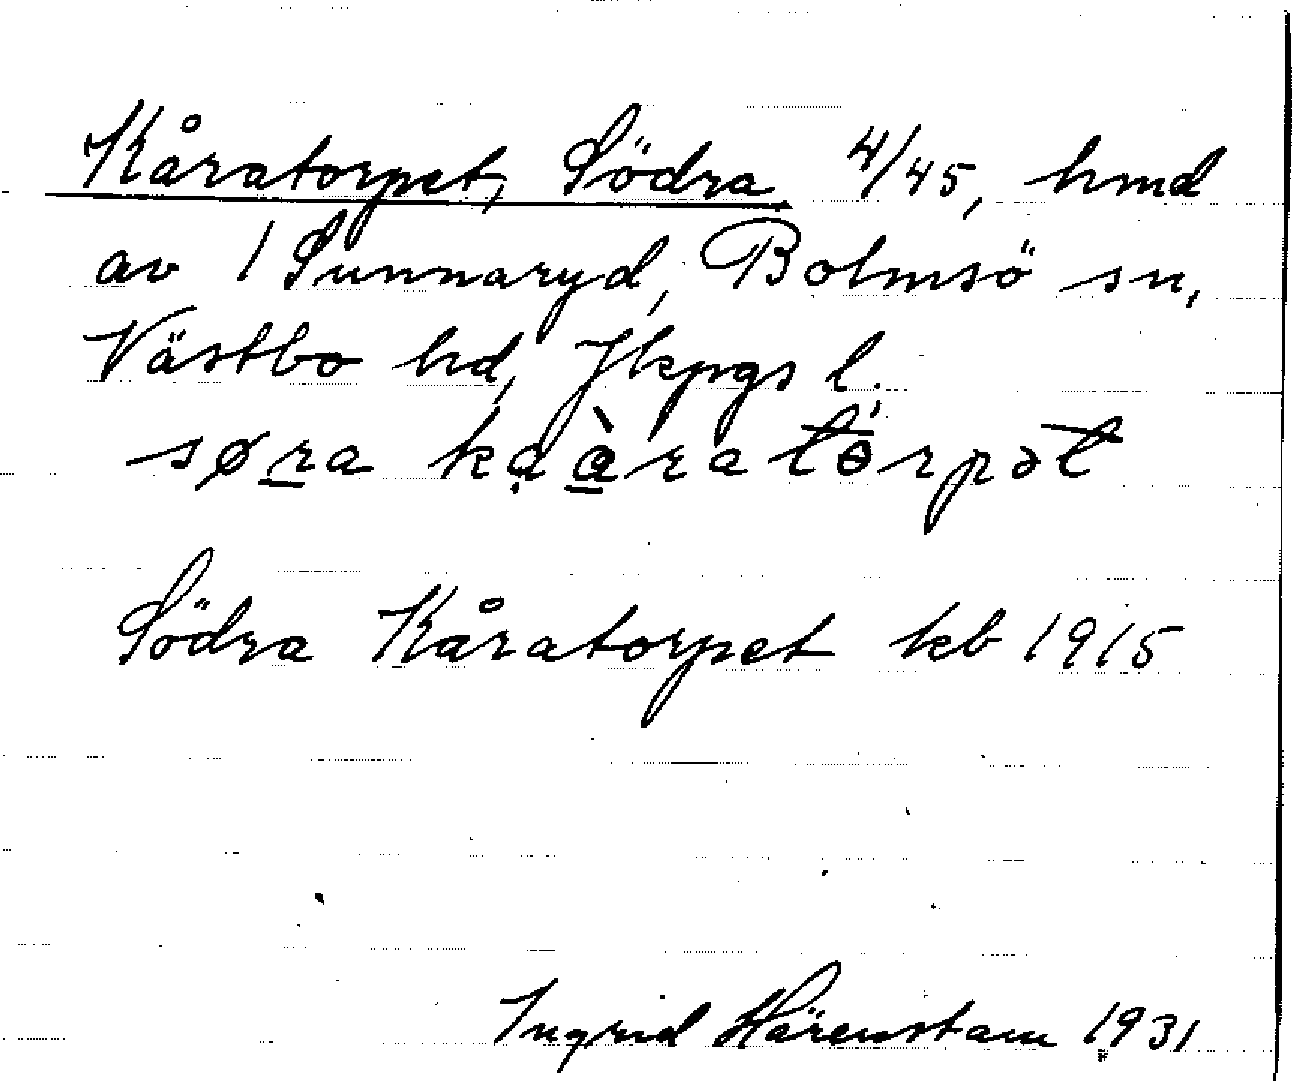 Kåratorpet, Södra 4/45, hmd
av 1 Sunnaryd, Bolmsö sn,
Västbo hd, Jkpgs l.
søra kaàratɵrpət
Södra Kåratorpet kb 1915
Ingrid Härenstam 1931